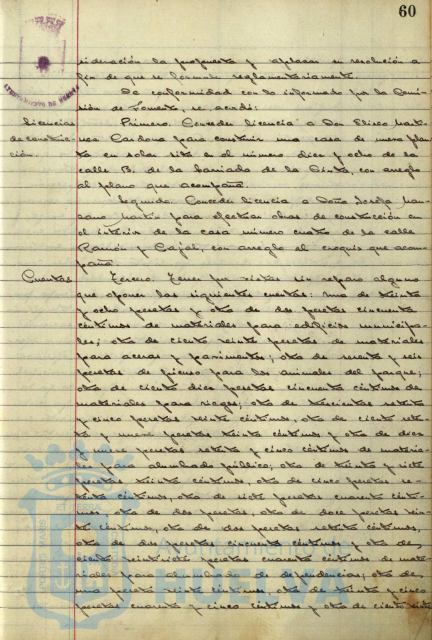 60
AYUNTAMIENTO DE HUELVA
sideración la propuesta y aplazar su resolución a
fin de que se formule reglamentariamente.
De conformidad con lo informado por la Comi-
sión de Fomento, se acordó:
Licencias
de construc-
ción.
Primero. Conceder licencia a Don Eliseo Martí-
nez Cardona para construir una casa de nueva plan-
ta en solar sito en el número diez y ocho de la
calle B. de la barriada de la Cinta, con arreglo
al plano que acompaña.
Segundo. Conceder licencia a Doña Josefa
Martín para efectuar obras de construcción en
el interior de la casa número cuatro de la calle
Ramón y Cajal, con arreglo al croquis que acom-
paña.
Cuentas
Tercero. Tener por vistas sin reparo alguno
que oponer las siguientes cuentas: una de treinta
y ocho pesetas y otra de dos pesetas cincuenta
céntimos de materiales para edificios municipa-
les; otra de ciento veinte pesetas de materiales
para aceras y pavimentos; otra de y seis
pesetas de pienso para los animales del parque;
otra de ciento diez pesetas cincuenta céntimos de
materiales para riegos; otra de trescientas
y cinco pesetas veinte céntimos, otra de ciento
y nueve pesetas treinta céntimos y otra de
y nueve pesetas setenta y cinco céntimos de materia-
les para alumbrado público; otra de treinta y siete
pesetas treinta céntimos, otra de cinco pesetas se-
tenta céntimos, otra de siete pesetas cuarenta cénti-
mos, otra de dos pesetas, otra de doce pesetas vein-
te céntimos, otra de dos pesetas setenta céntimos,
otra de dos pesetas cincuenta céntimos y otra de
ciento veintisiete pesetas cuarenta céntimos de mate-
riales para alumbrado de dependencias; otra de
una peseta veinte céntimos, otra de treinta y cinco
pesetas cuarenta y cinco céntimos y otra de ciento
Ayuntamiento de
HUELVA